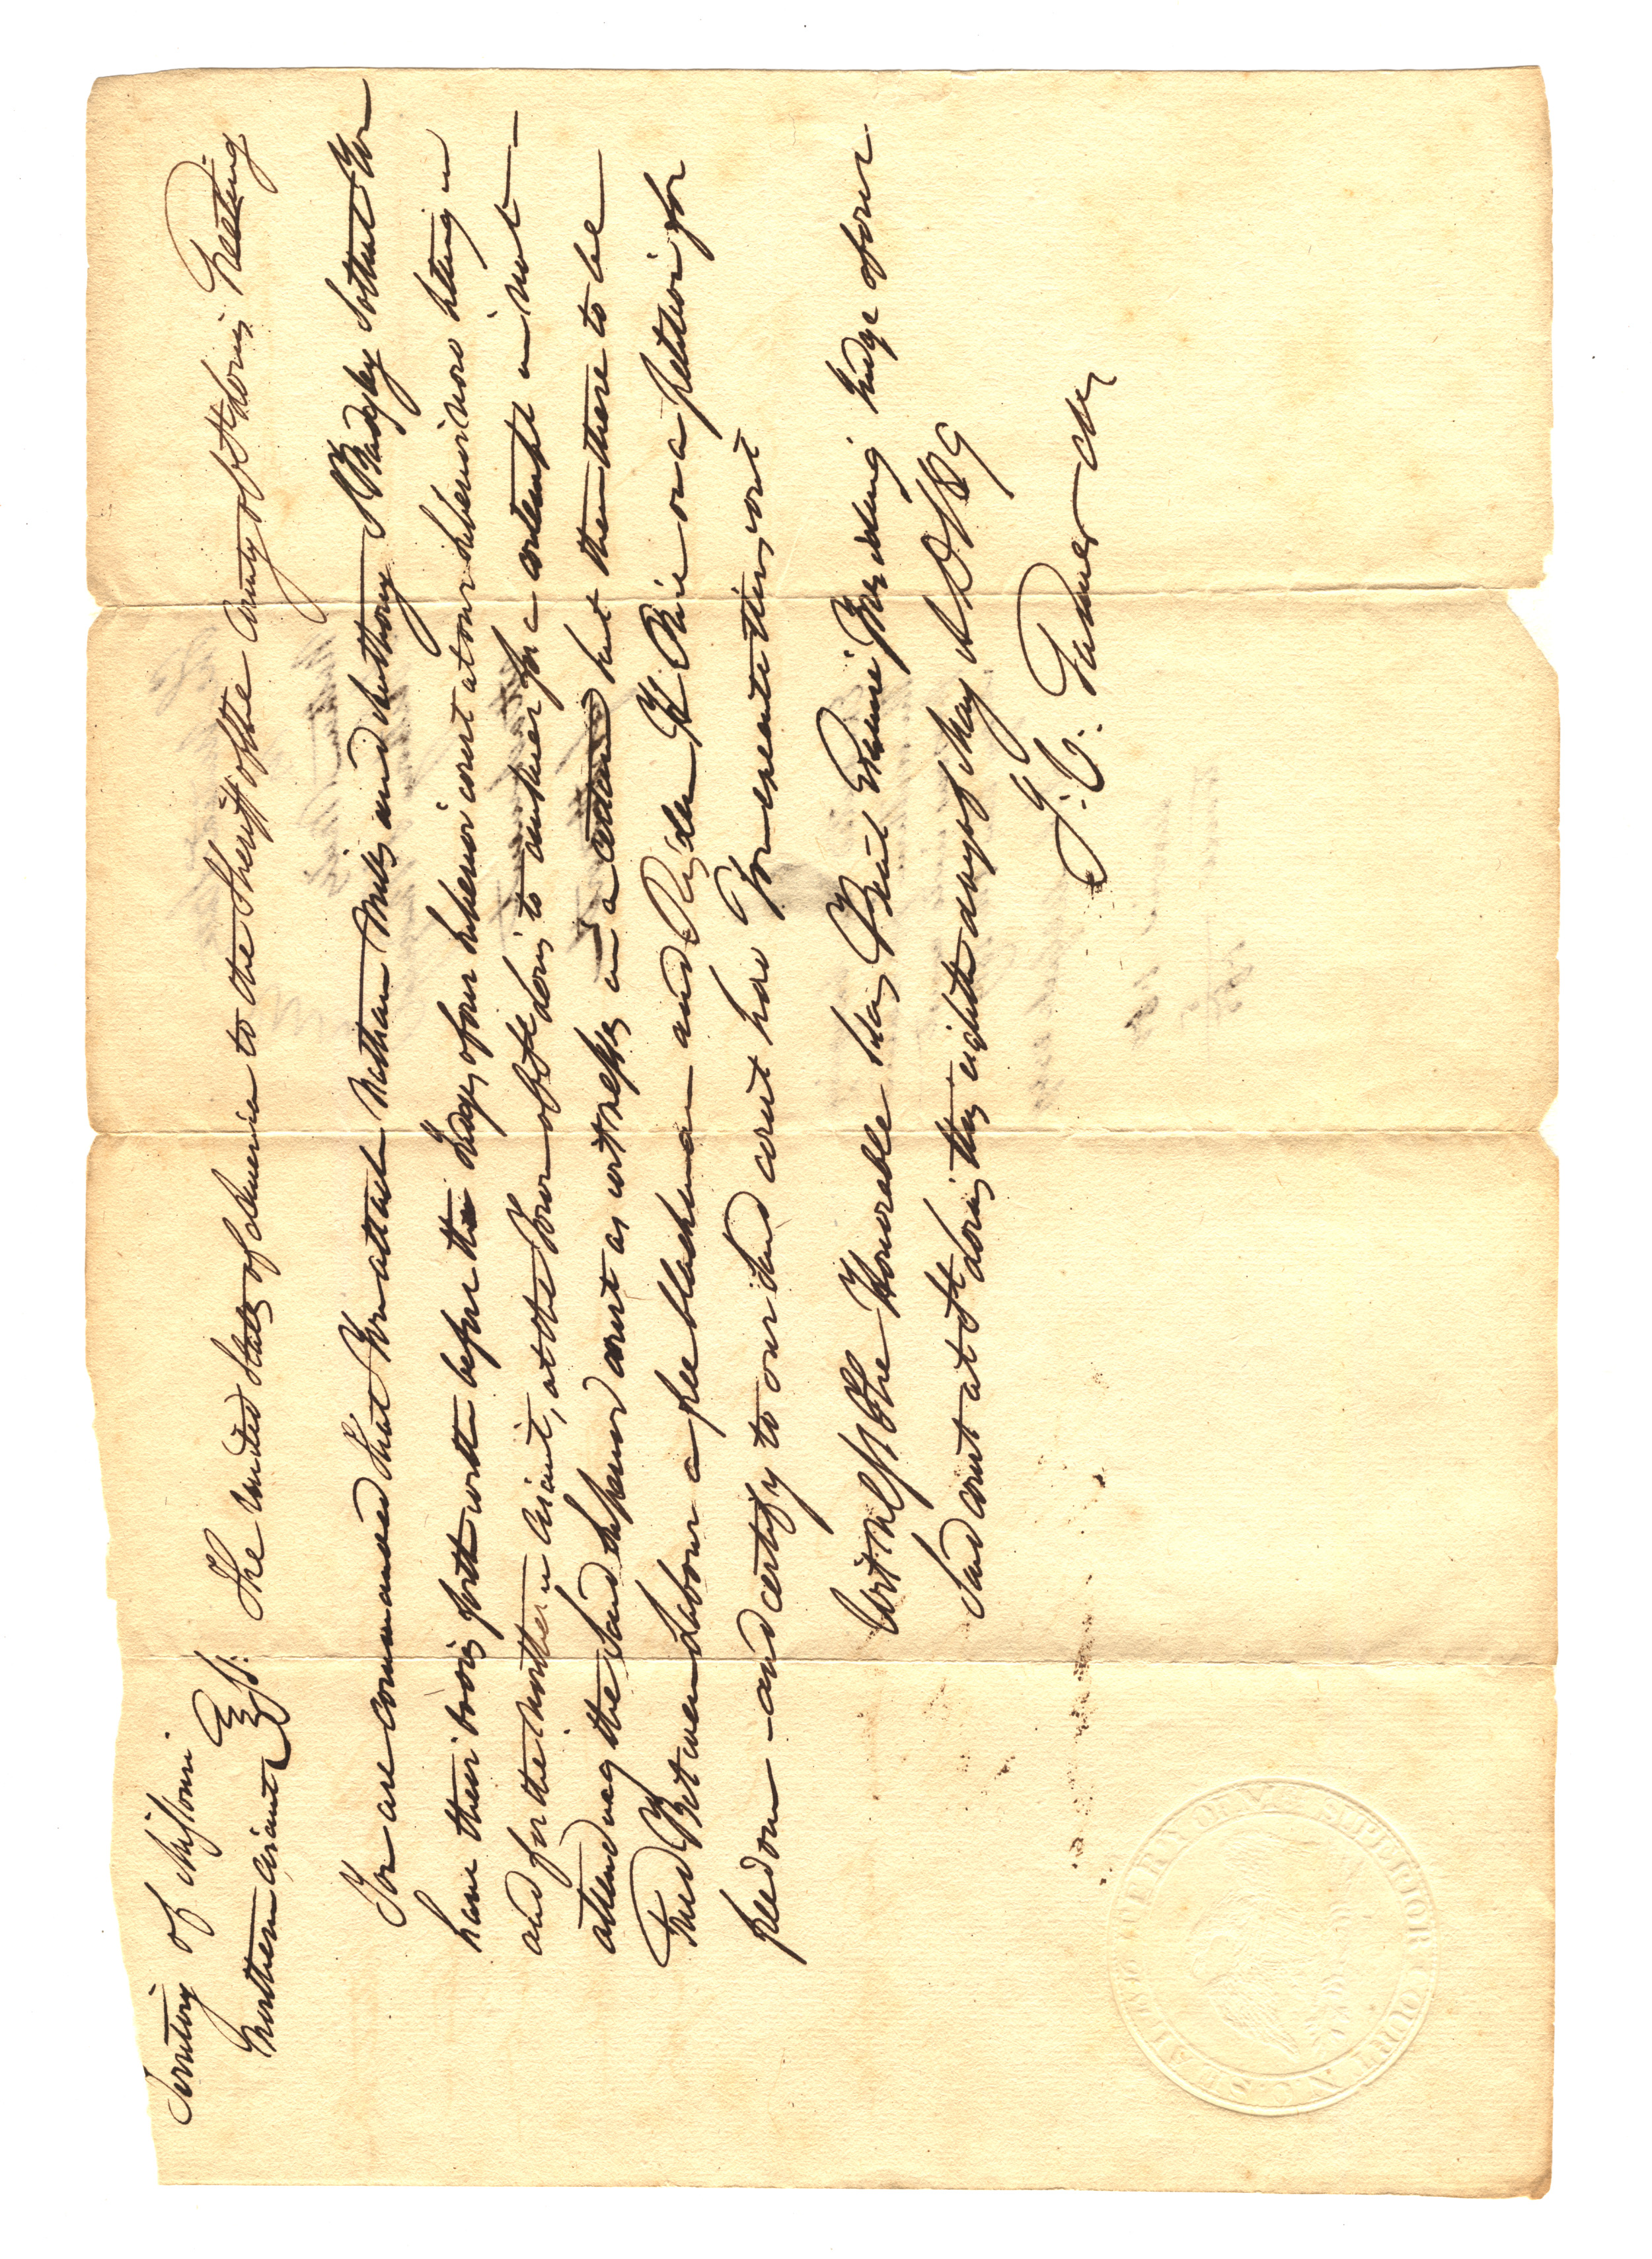 Territory of Missouri
Northern Circuit } Sst. The United States of America to the Sheriff of the County of St Louis Greeting
You are commanded that You attach Nathan Mills and Anthony Badgley so that You
have their bodies forthwith before the Judges of our Superior court at our Superior now sitting in
and for the Northern Circuit, at the Town of St Louis to answer for a contempt in not
attending the said Superior court as witnesses in a certain suit then there to be
tried Between Labour a free black man and Risden H Price on a petition for
freedom and certify to our said court how You execute this writ
Witness the Honorable Silas Bent Esquire Presiding Judge of our
said court at St Louis this eighth day of May A D 1819
J. V. Garnier Clk
TERRITORY OF SUPERIOR COURT